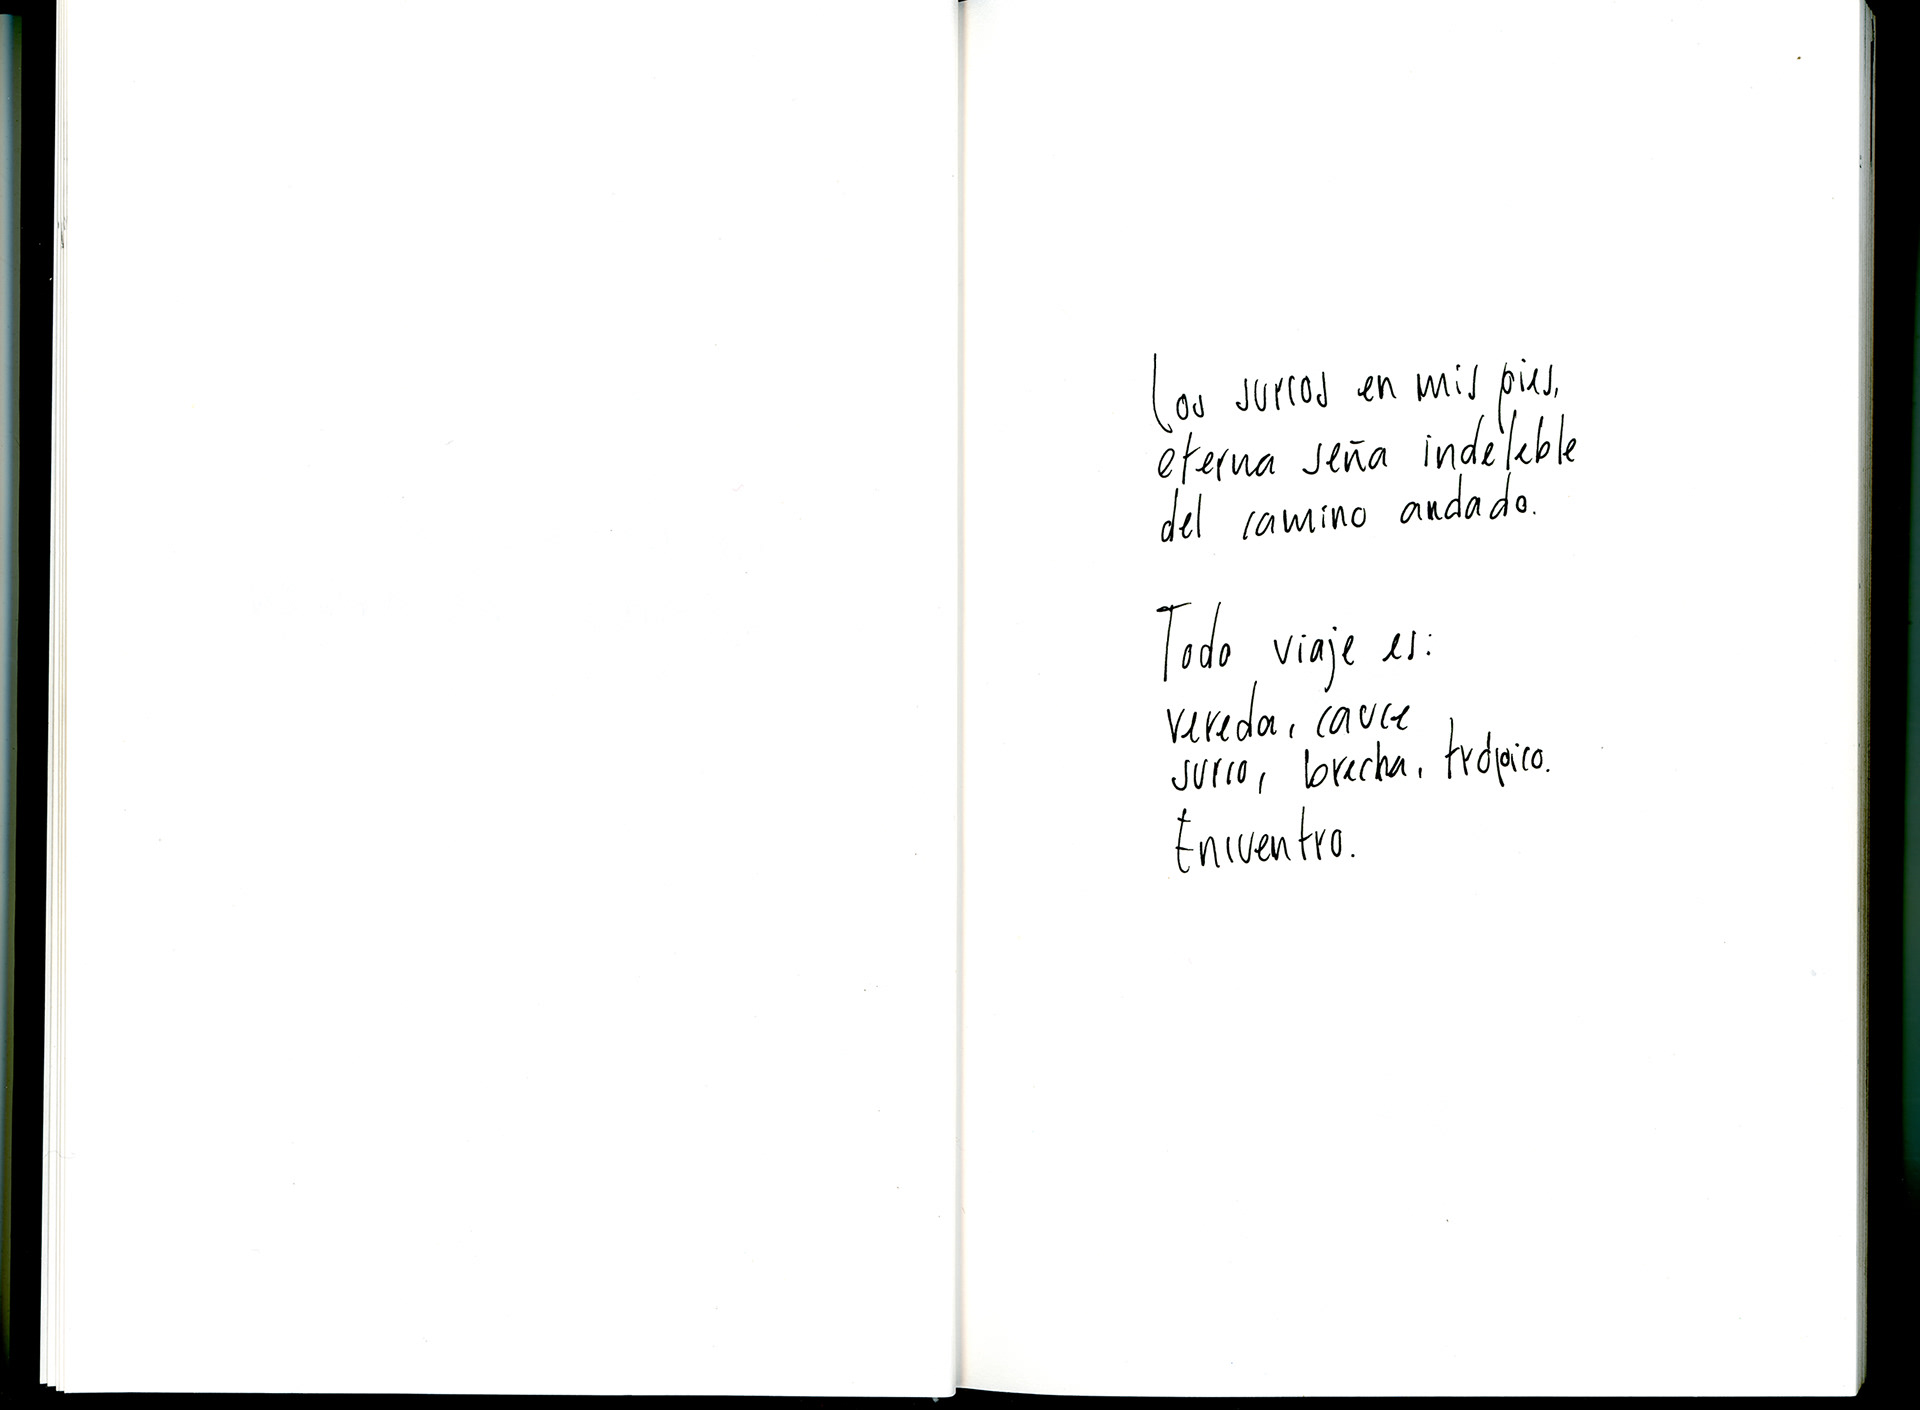 Los surcos en mis pies,
eterna seña indeleble
del camino andado.
Todo viaje es:
vereda, cauce
surco, brecha, trópico.
Encuentro.